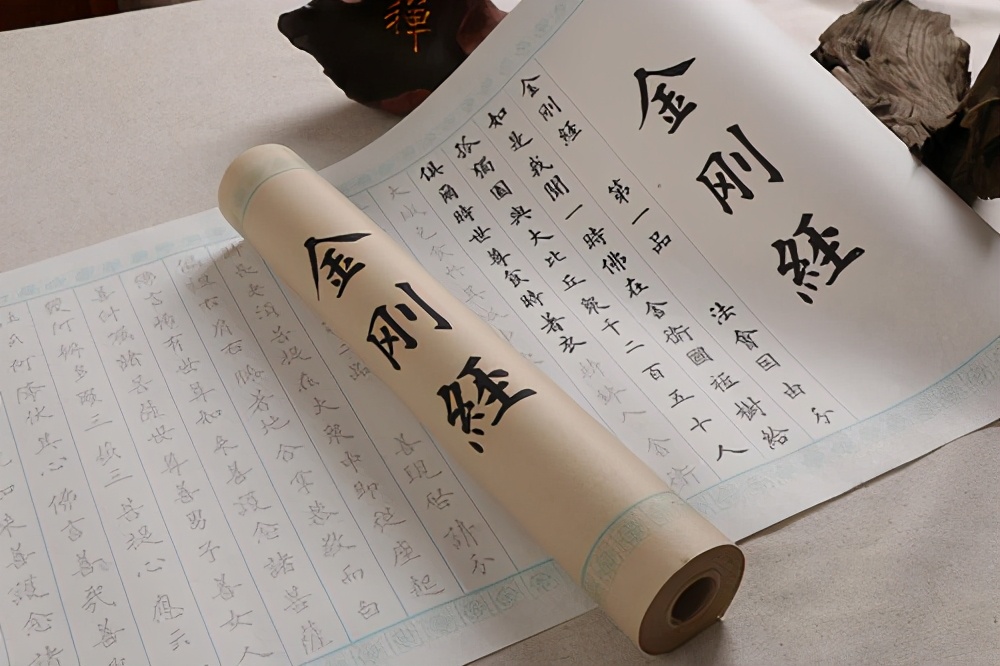 禪
金刚経
金刚経
第一品 法會因由分
如是我聞一時佛在舍衛國祗樹給
孤獨園與大比丘衆千二百五十人
俱爾時世尊食時著衣
大城乞食
金刚経
品 善現啓請分
老須菩提在大衆中即從座起
偏袒右肩右膝著地合掌恭敬而白
佛言希有世尊如來善護念諸菩薩
善付囑諸菩薩世尊善男子善女人
發阿耨多羅三藐三菩提心應云
何降伏其心佛言善哉善
善護念諸